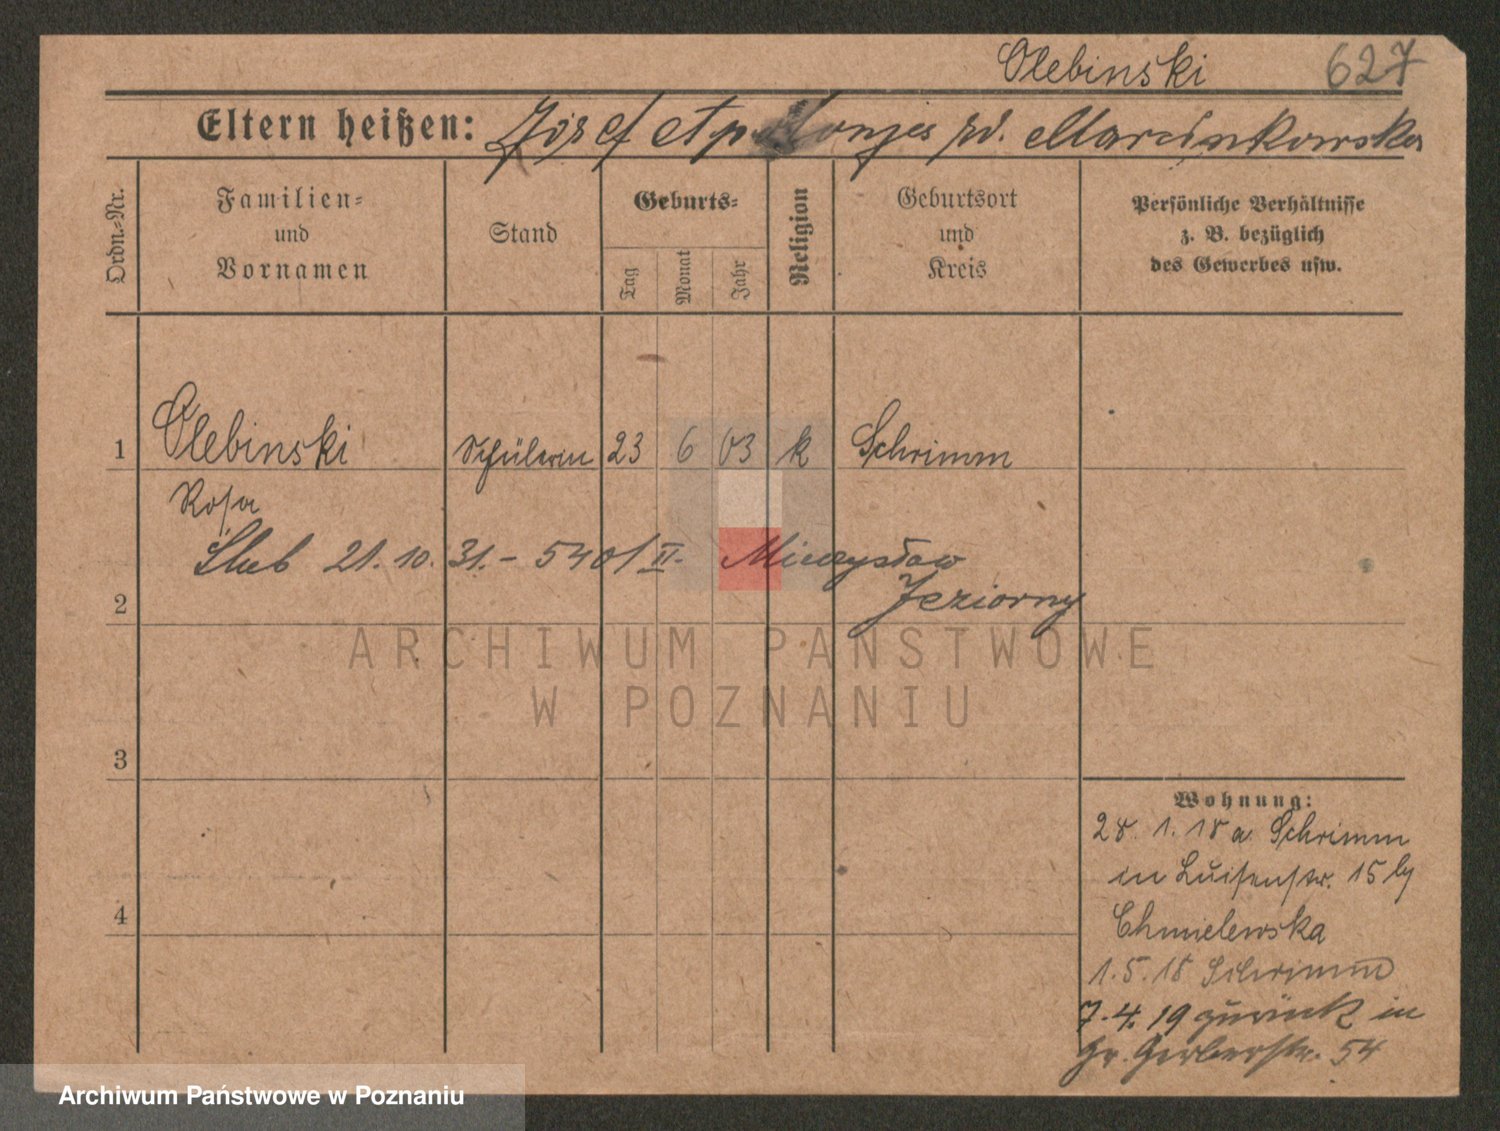 Olebinski 627
Eltern heißen: Józef Apolonja zd. Marcinkowska
Ordn.-Nr.
Familien-
und
Vornamen
Stand
Geburts-
Tag
Monat
Jahr
Religion
Geburtsort
und
Kreis
Persönliche Verhältnisse
z. B. bezüglich
des Gewerbes usw.
1 Olebinski Schülerin 23 6 03 k Schrimm
Rosa
Ślub 21.10.31.- 540/II. Mieczysław
Jeziorny
2
ARCHIWUM PAŃSTWOWE
W POZNANIU
3
4
Wohnung:
28. 1. 18 a. Schrimm
in Luisenstr. 15 by
Chmielewska
1.5.18 Schrimm
7.4.19 zurück in
Gr. Gerberstr. 54
Archiwum Państwowe w Poznaniu